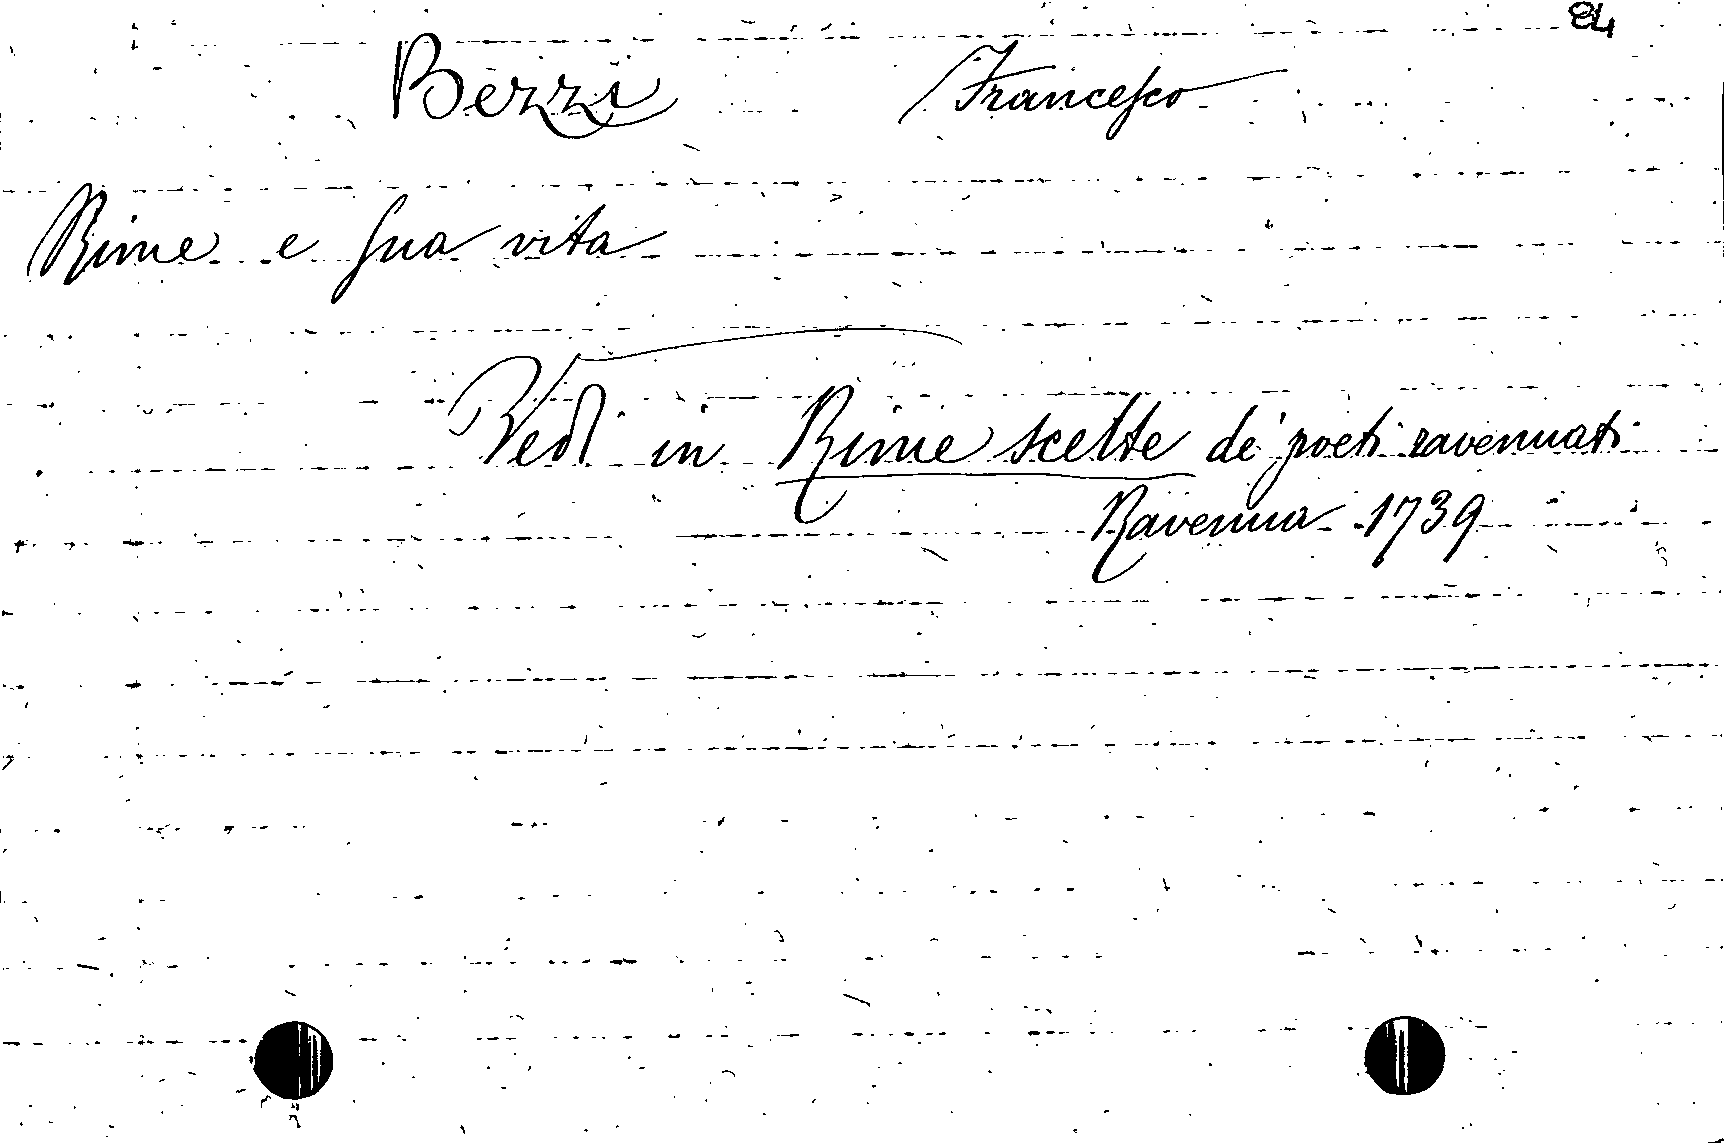 84
Bezzi Francesco
Rime e sua vita
Vedi in Rime scelte de' poeti ravennati
Ravenna 1739